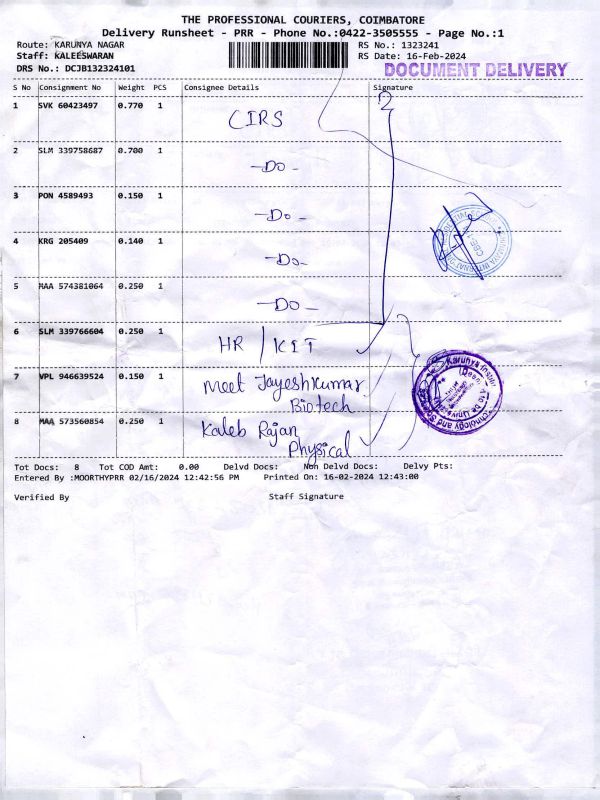 THE PROFESSIONAL COURIERS, COIMBATORE
Delivery Runsheet - PRR - Phone No.:0422-3505555 - Page No.:1
Route: KARUNYA NAGAR RS No.: 1323241
Staff: KALEESWARAN RS Date: 16-Feb-2024
DRS No.: DCJB132324101 DOCUMENT DELIVERY
S No Consignment No Weight PCS Consignee Details Signature
1 SVK 60423497 0.770 1 CIRS
2 SLM 339758687 0.700 1 -Do-
3 PON 4589493 0.150 1 -Do-
4 KRG 205409 0.140 1 -Do-
5 MAA 574381064 0.250 1 -Do-
6 SLM 339766604 0.250 1 HR / KIT
7 VPL 946639524 0.150 1 Meet Jayeshkumar
Biotech
8 MAA 573560854 0.250 1 Kaleb Rajan
Physical
Tot Docs: 8 Tot COD Amt: 0.00 Delvd Docs: Non Delvd Docs: Delvy Pts:
Entered By :MOORTHYPRR 02/16/2024 12:42:56 PM Printed On: 16-02-2024 12:43:00
Verified By Staff Signature